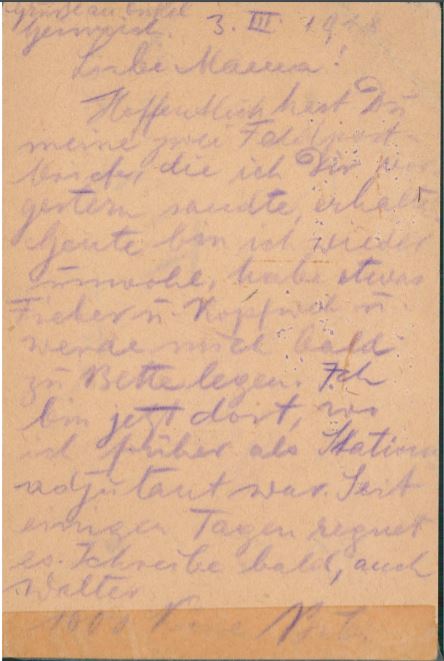 Grüße an Onkel
Heinrich. 3. III 1918
Liebe Mama!
Hoffentlich hast Du
meine zwei Feldpost-
briefe, die ich Dir vor-
gestern sandte, erhalten
Heute bin ich wieder
unwohl, habe etwas
Fieber u. Kopfweh u.
werde mich bald
zu Bette legen. Ich
bin jetzt dort, wo
ich früher als Stations
adjutant war. Seit
einigen Tagen regnet
es. Schreibe bald, auch
Walter
1000